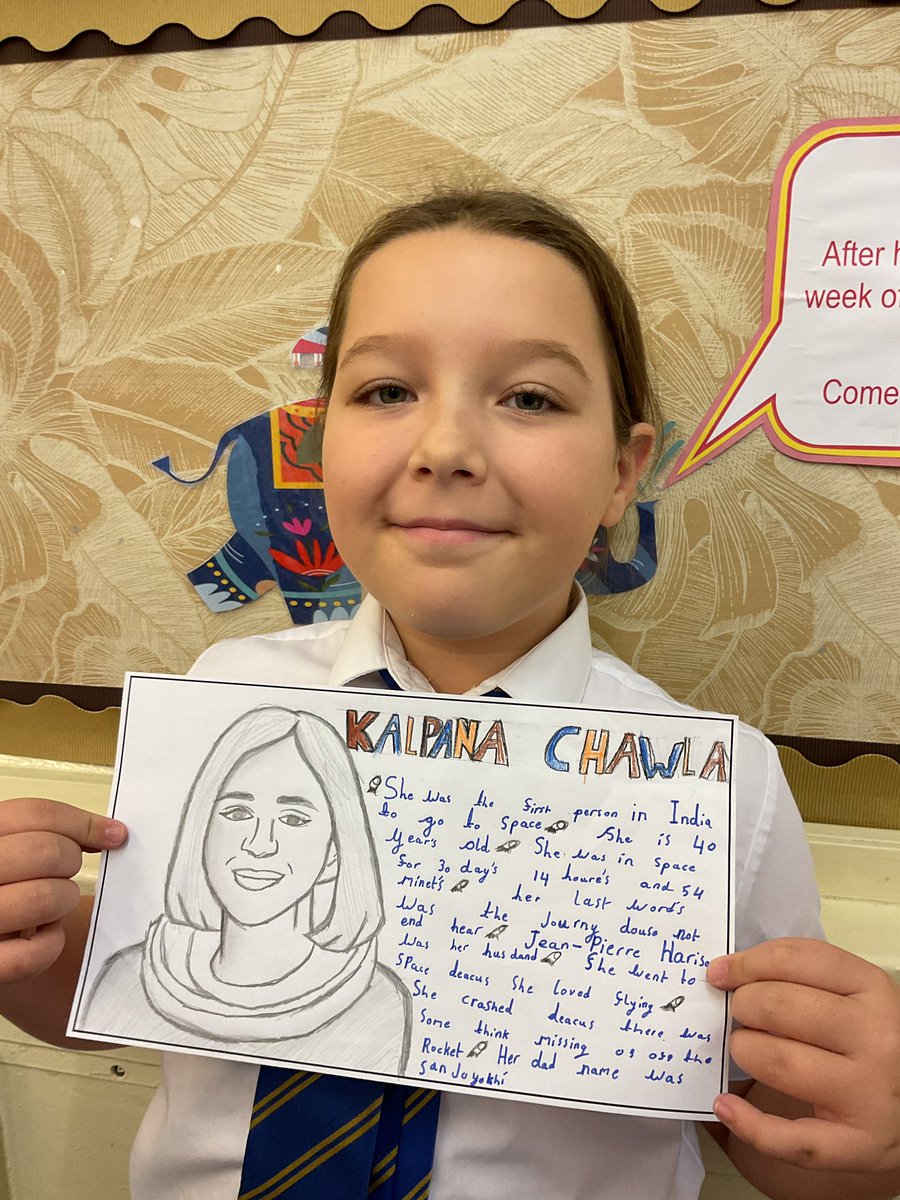 After h
week of
Come
KALPANA CHAWLA
She was the first person in India
to go to space She is 40
Years old She was in space
for 30 day's 14 houre's and 54
minet's her last word's
was the Journy douse not
end hear Jean-Pierre Harise
was her husdand She went to
space deacus she loved flying
She crashed deacus there was
some think missing of off the
Rocket Her dad name was